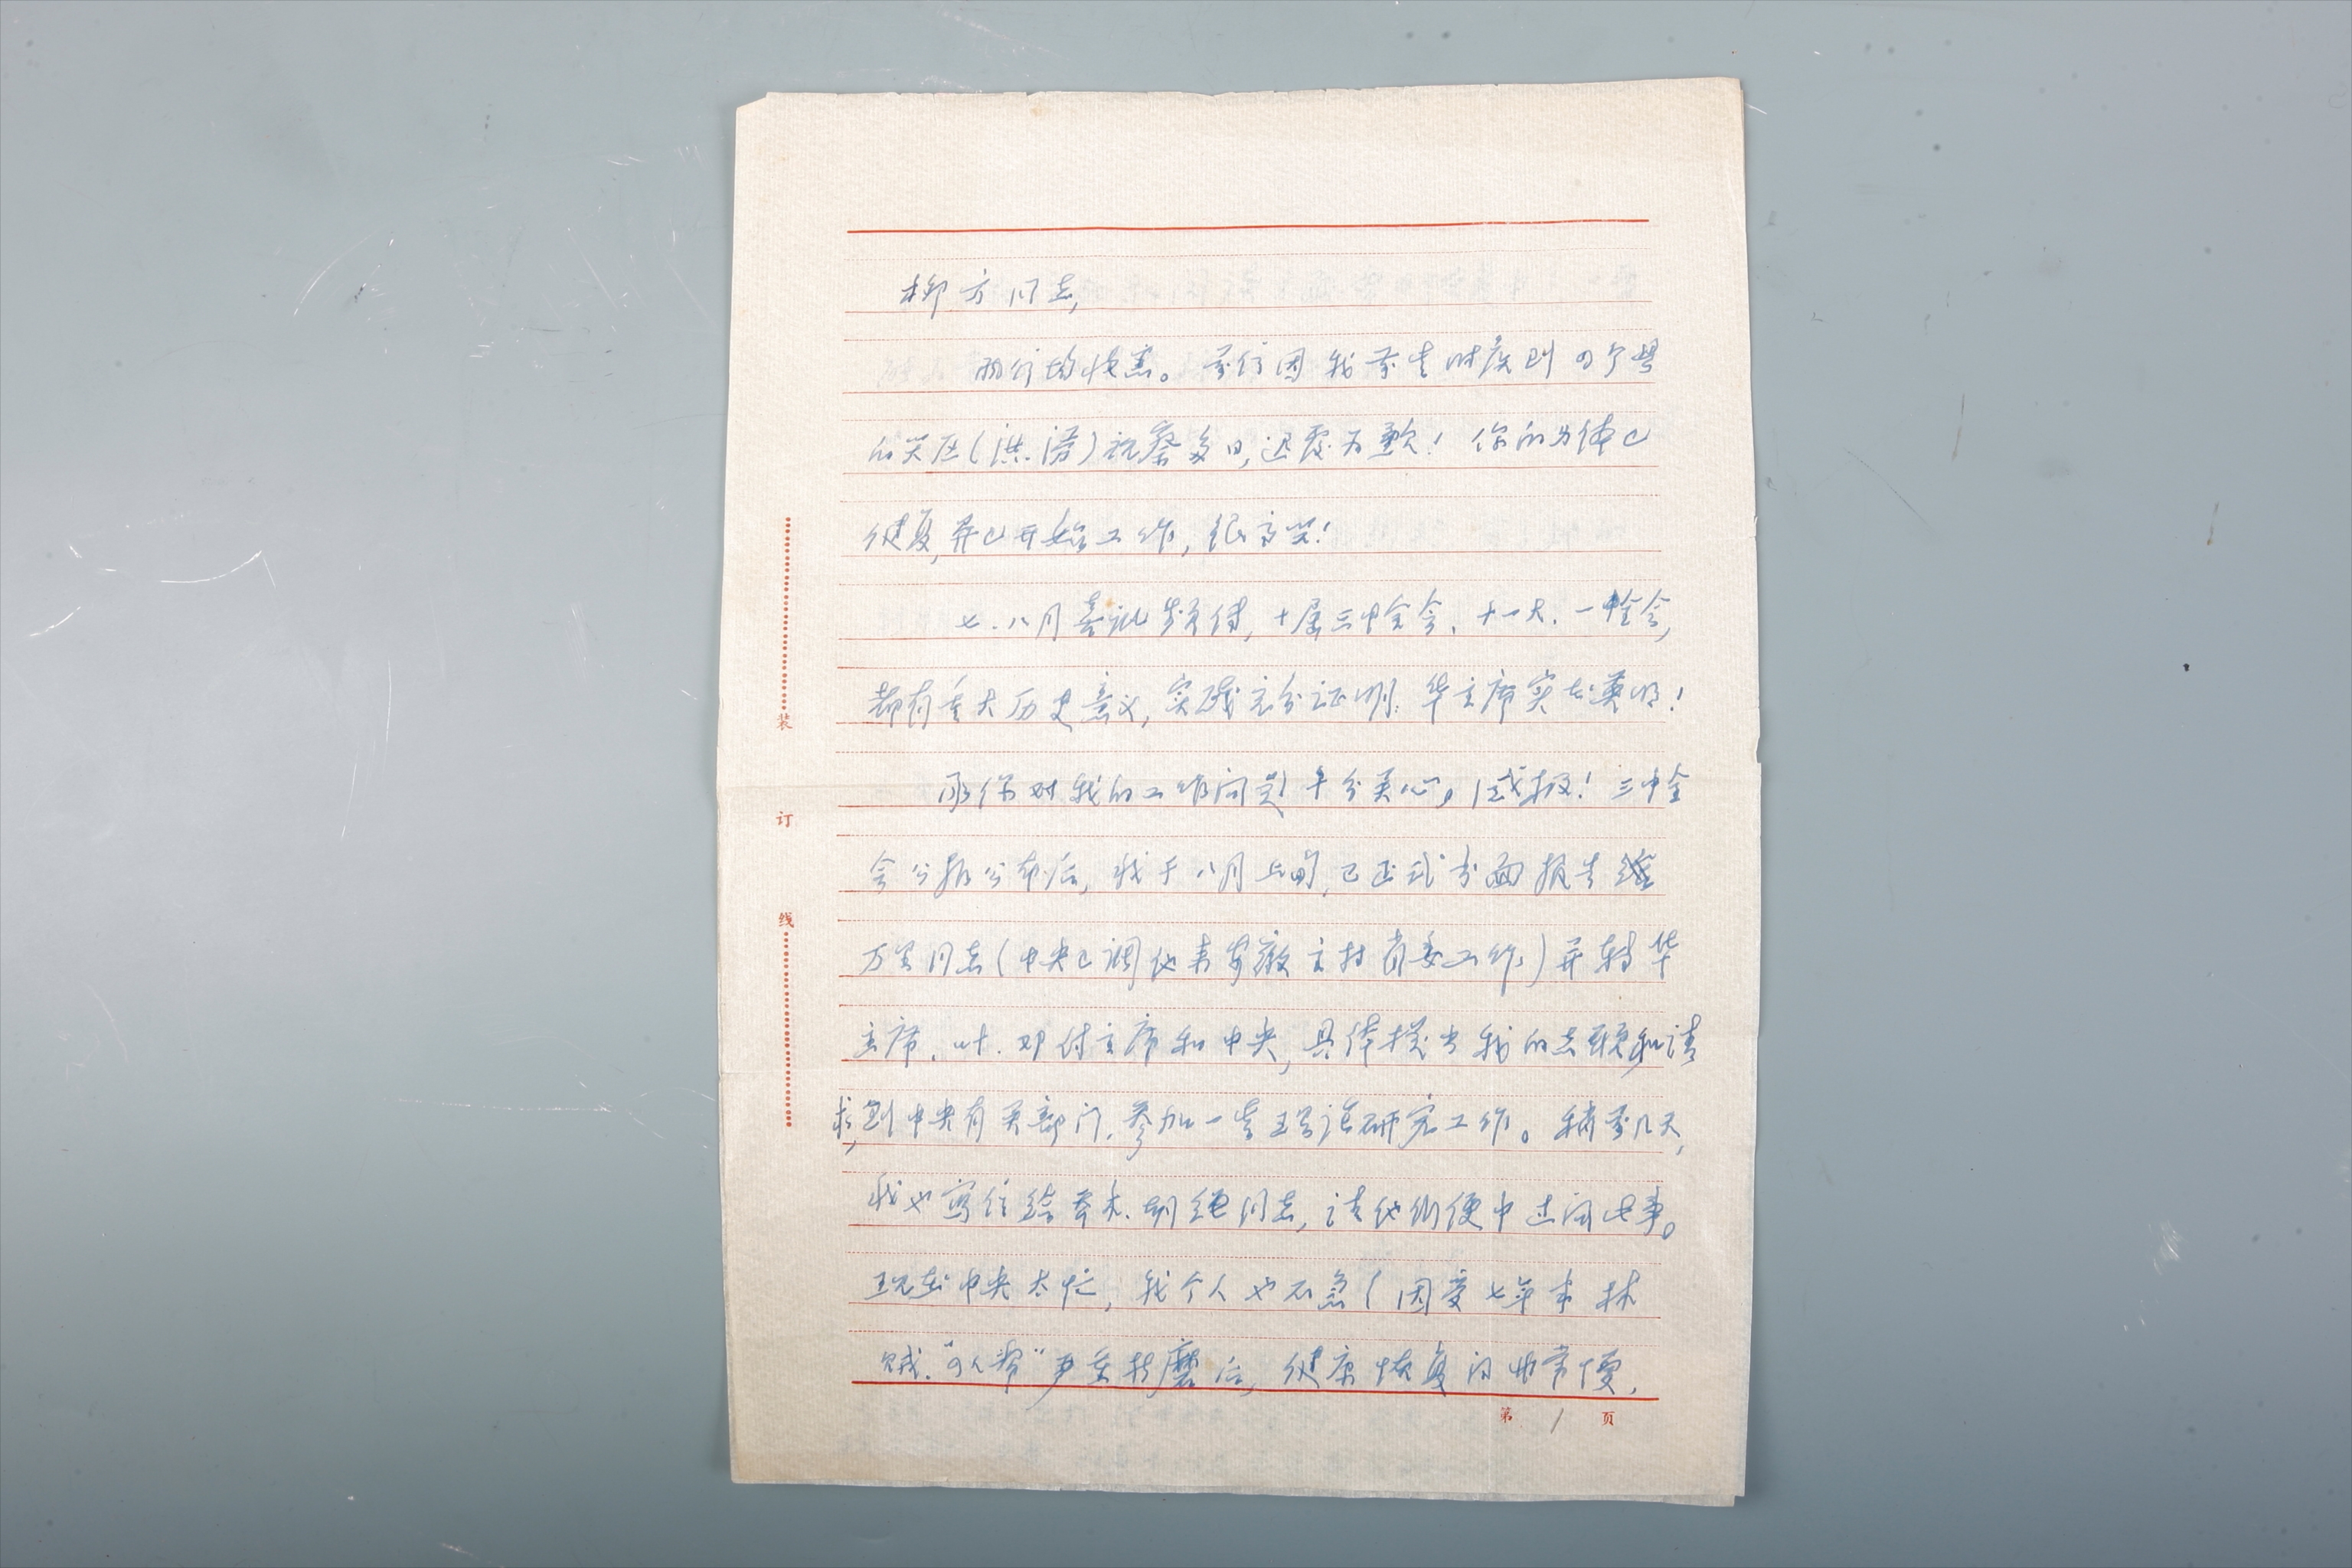 柳方同志,
两信均收悉。前信因我前去时疾到四个县
的灾区(洪.涝)视察多日,迟覆为歉!你的身体已
健复,并已开始工作,很高兴!
七.八月喜讯频传,十届三中全会、十一大.一中全会,
都有重大历史意义,实践充分证明:华主席实在英明!
承你对我的工作问题十分关心,感极!三中全
会公报公布后,我于八月上旬,已正式书面报告
万里同志(中央已调他来安徽主持省委工作)并转华
主席.叶.邓付主席和中央,具体提出我的志愿和请
求,到中央有关部门.参加一些理论研究工作。稍前几天,
我也写信给乔木.胡绳同志,请他们便中过问此事。
现在中央太忙,我个人也不急(因受七年来林
贼."四人帮"严重折磨后,健康恢复的非常慢,
装
订
线
第 1 页